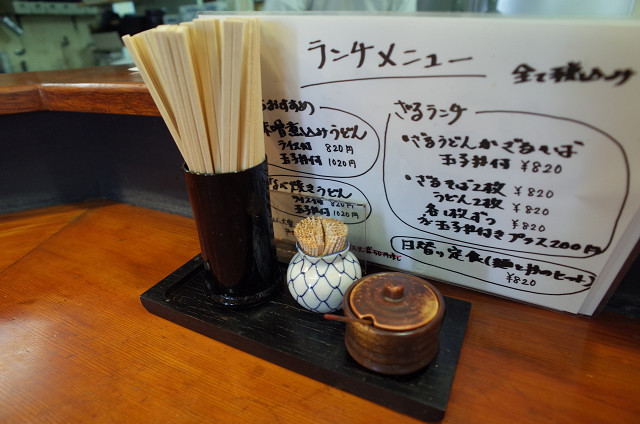 ランチメニュー
全て税込み
おすすめ
味噌煮込みうどん
ライス付 820円
玉子丼付 1020円
焼きうどん
ライス付 820円
玉子丼付 1020円
ざるランチ
・ざるうどんかざるそば
玉子丼付 ¥820
・ざるそば2枚 ¥820
うどん2枚 ¥820
各1枚ずつ ¥820
玉子丼付きプラス200円
日替り定食(麺と丼のセット)
¥820